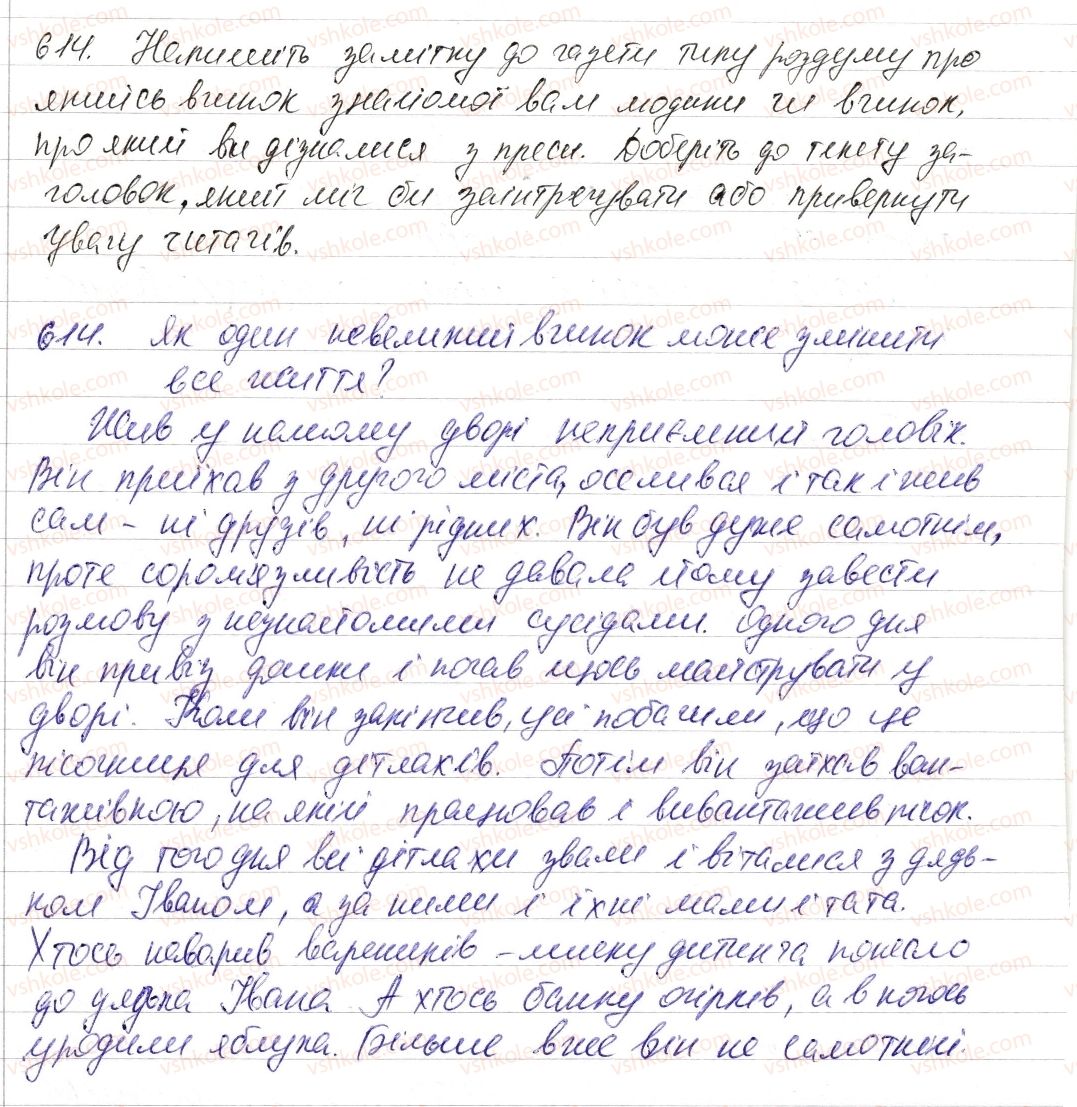 614. Напишіть замітку до газети типу роздуму про
якийсь вчинок знайомої вам людини чи вчинок,
про який ви дізналися з преси. Доберіть до тексту за-
головок, який міг би заінтригувати або привернути
увагу читачів.
614. Як один невеликий вчинок може змінити
все життя?
Жив у нашому дворі неприємний чоловік.
Він приїхав з другого міста, оселився і так і жив
сам – ні друзів, ні рідних. Він був дуже самотнім,
проте сором'язливість не давала йому завести
розмову з незнайомими сусідами. Одного дня
він привіз дошки і почав щось майструвати у
дворі. Коли він закінчив, усі побачили, що це
пісочниця для дітлахів. Потім він заїхав ван-
тажівкою, на якій працював і вивантажив пісок.
Від того дня всі дітлахи звали і віталися з дядь-
ком Іваном, а за ними і їхні мами і тата.
Хтось наварив вареників – миску дитинча понесло
до дядька Івана. А хтось банку огірків, а в когось
уродили яблука. Більше вже він не самотній.
vshkole.com